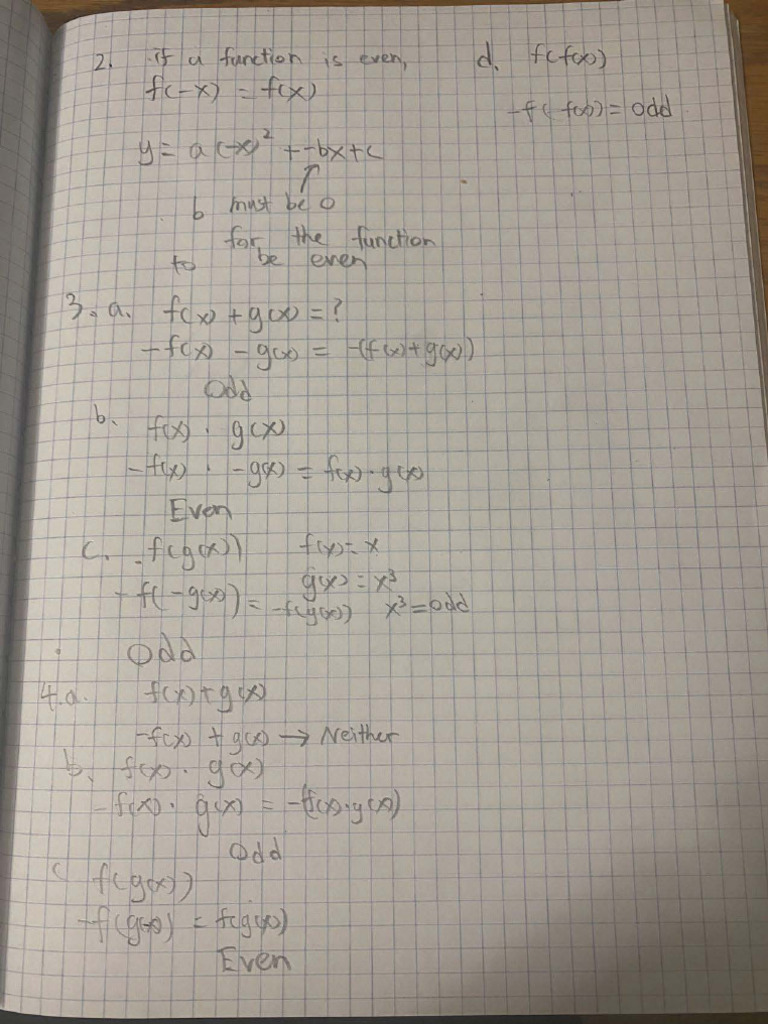 2. if a function is even,
f(-x) = f(x)
y = a(-x)² + -bx+c
b must be 0
for the function
to be even
3. a. f(x) + g(x) = ?
-f(x) - g(x) = -(f(x)+g(x))
Odd
b. f(x) · g(x)
-f(x) · -g(x) = f(x)·g(x)
Even
c. f(g(x)) f(x) = x
g(x) = x³
-f(-g(x)) = -f(g(x)) x³ = odd
Odd
4.a. f(x)+g(x)
-f(x) + g(x) → Neither
b. f(x) · g(x)
-f(x) · g(x) = -(f(x)·g(x))
Odd
c f(g(x))
-f(g(x)) = f(g(x))
Even
d. f(f(x))
-f(f(x)) = odd